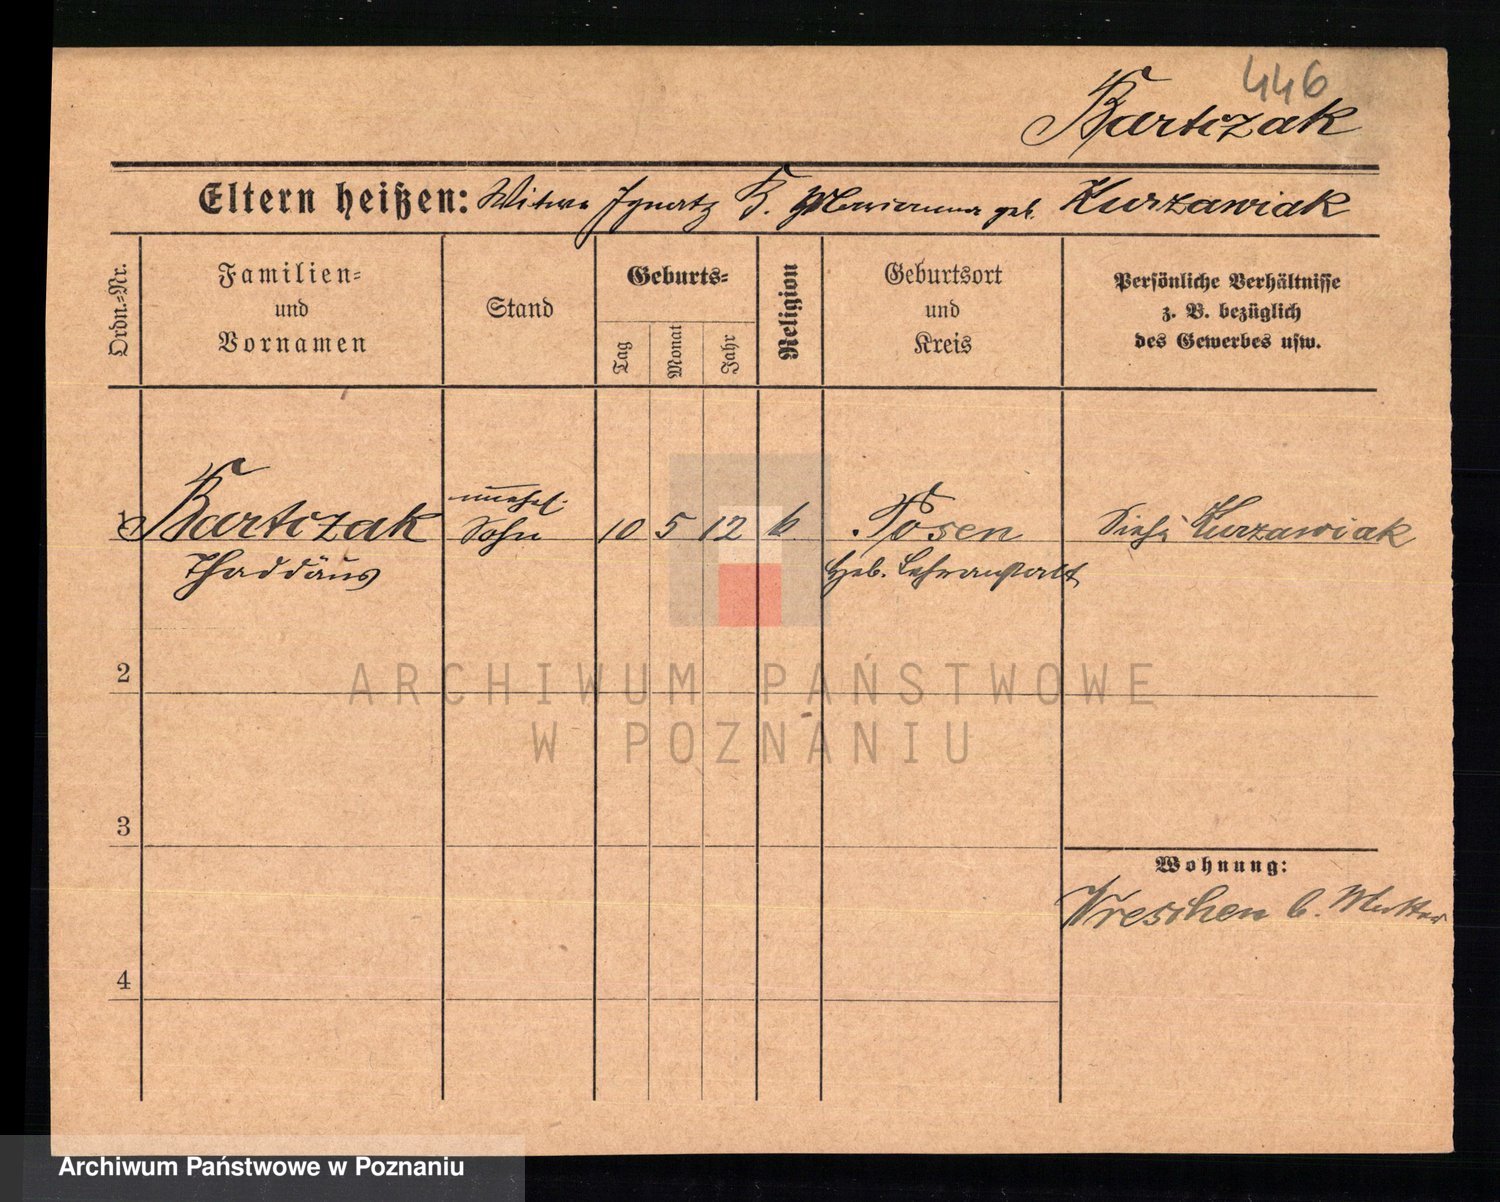 446
Bartczak
Eltern heißen: Witwe Ignatz B. Marianna geb. Kurzawiak
Ordn.=Nr.
Familien=
und
Vornamen
Stand
Geburts=
Tag
Monat
Jahr
Religion
Geburtsort
und
Kreis
Persönliche Verhältnisse
z. B. bezüglich
des Gewerbes usw.
1
Bartczak
Thaddäus
unehel.
Sohn
10 5 12
Posen
Heb. Lehranstalt
Siehe Kurzawiak
2
3
4
Wohnung:
Wreschen b. Mutter
ARCHIWUM PAŃSTWOWE
W POZNANIU
Archiwum Państwowe w Poznaniu